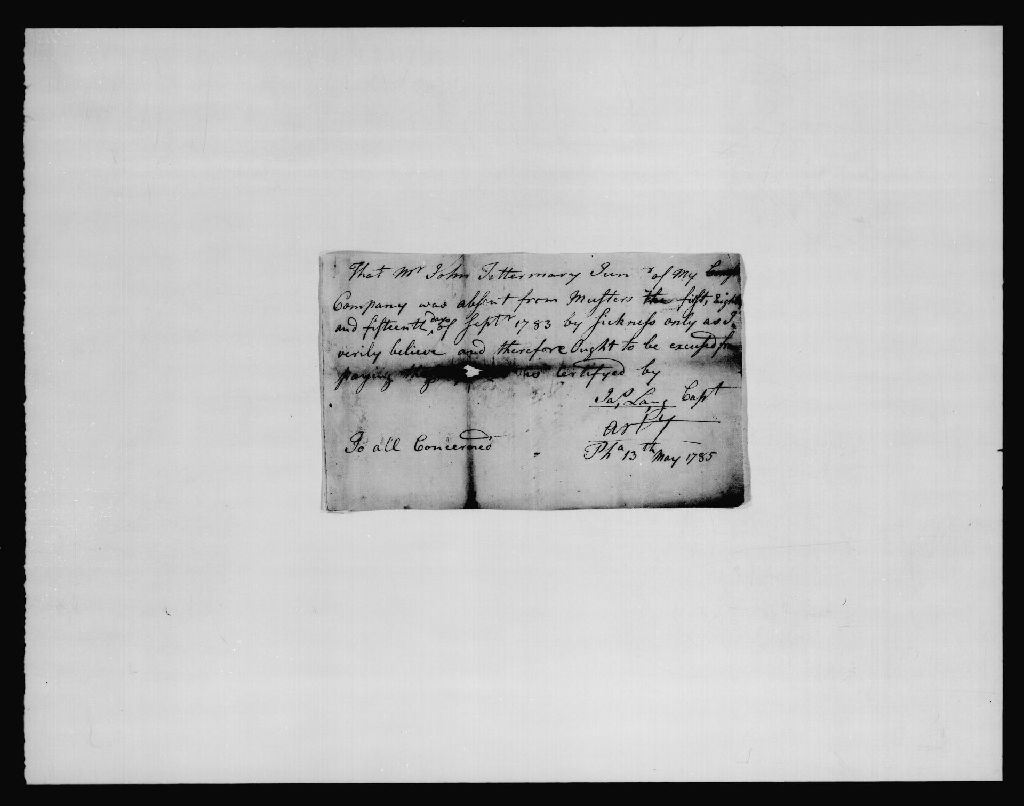 That Mr John Tettermary Junr of My
Company was absent from Musters the first, Eight
and fifteenth days of Septr 1783 by sickness only as I
verily believe and therefore Ought to be excused from
paying certifyed by
Jas Lang Capt
Arty
To all Concerned
Pha 13th May 1785